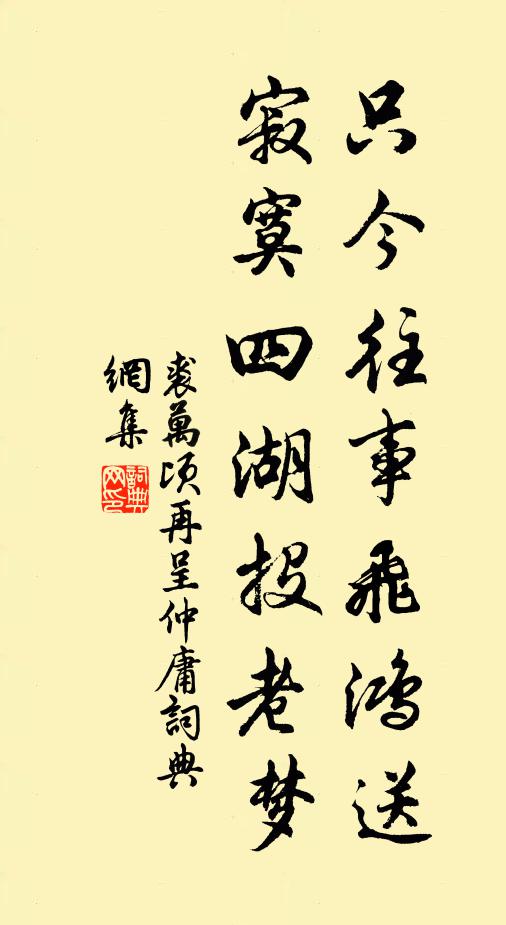 只今往事飛鴻送
寂寞四湖投老梦
裘萬頃再呈仲庸詞典
網集
詞典網印